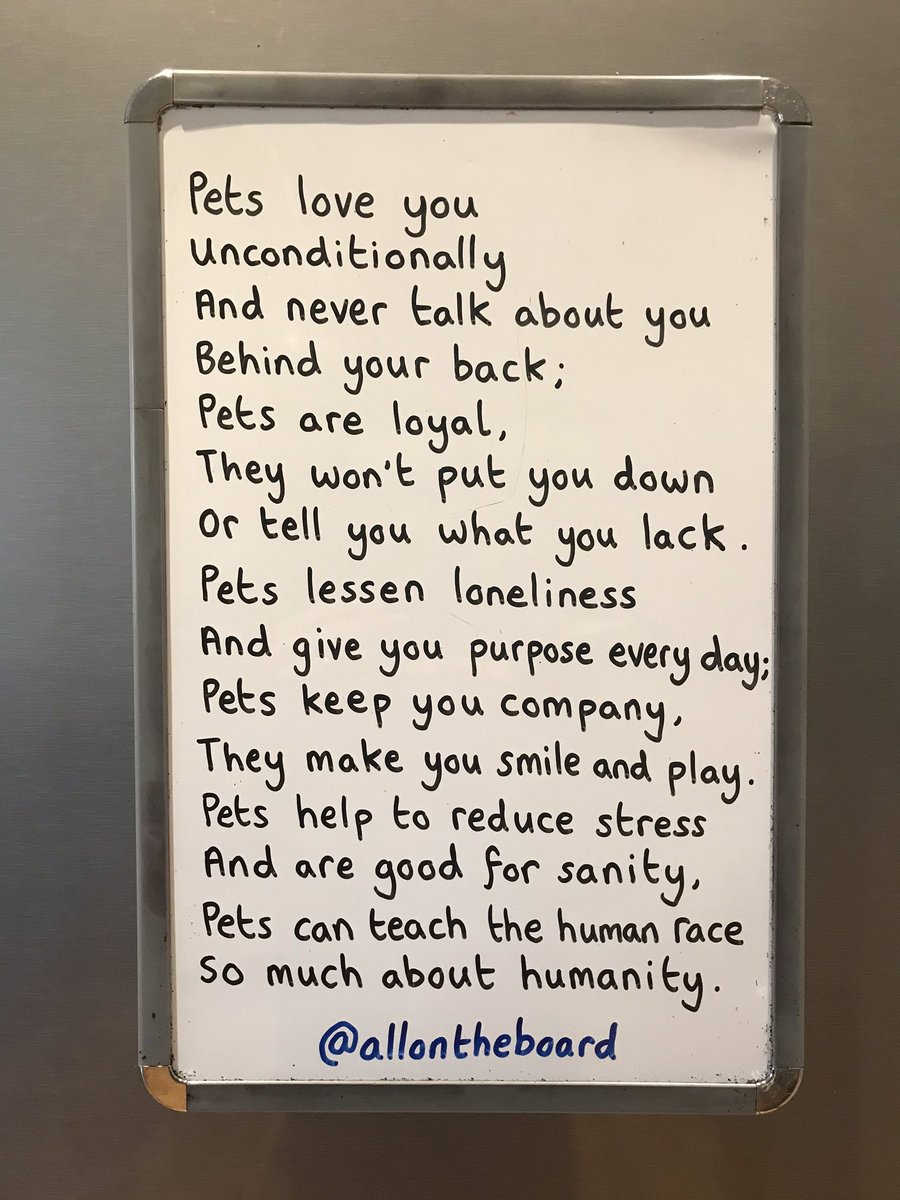 Pets love you
Unconditionally
And never talk about you
Behind your back;
Pets are loyal,
They won't put you down
Or tell you what you lack.
Pets lessen loneliness
And give you purpose every day;
Pets keep you company,
They make you smile and play.
Pets help to reduce stress
And are good for sanity,
Pets can teach the human race
So much about humanity.
@allontheboard